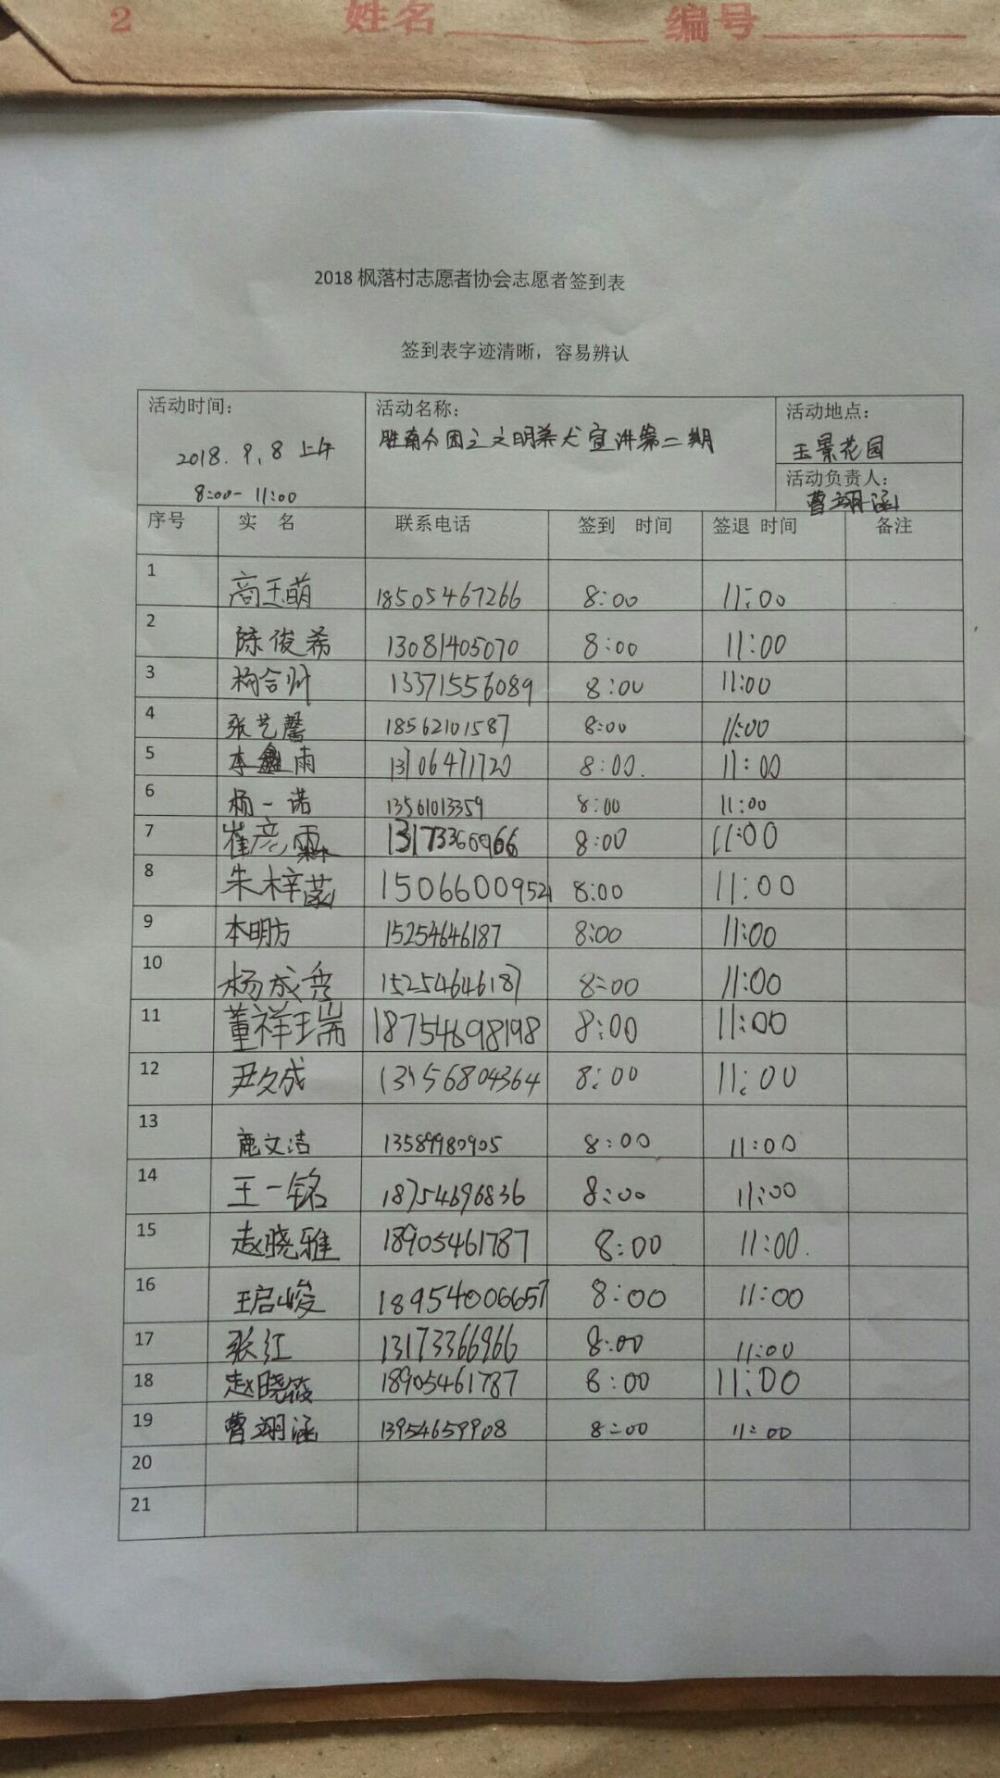 2 姓名 编号
2018 枫落村志愿者协会志愿者签到表
签到表字迹清晰，容易辨认
活动时间： 活动名称： 活动地点：
2018.9.8 上午 胜南分团之文明养犬宣讲第二期 玉景花园
8:00-11:00 活动负责人：
曹翊涵
序号 实 名 联系电话 签到 时间 签退 时间 备注
1 高玉萌 18505467266 8:00 11:00
2 陈俊希 13081405070 8:00 11:00
3 13371556089 8:00 11:00
4 张艺馨 18562101587 8:00 11:00
5 李鑫雨 13106471720 8:00. 11:00
6 杨一诺 13561013359 8:00 11:00
7 崔彦霖 13173366966 8:00 11:00
8 朱梓菡 15066009521 8:00 11:00
9 本明方 15254646187 8:00 11:00
10 杨成秀 15254646187 8:00 11:00
11 董祥瑞 18754698198 8:00 11:00
12 尹久成 8:00 11:00
13 鹿文洁 13589980905 8:00 11:00
14 王一铭 18754696836 8:00 11:00
15 赵晓雅 18905461787 8:00 11:00.
16 王启峻 18954006657 8:00 11:00
17 张江 13173366966 8:00 11:00
18 赵晓筱 18905461787 8:00 11:00
19 曹翊涵 13954659908 8:00 11:00
20
21